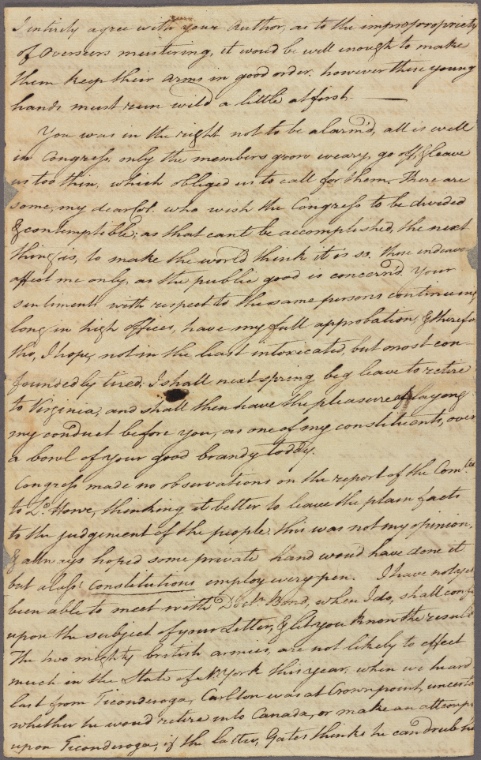 I entirely agree with your Author, as to the impropropriety
of Overseers mustering, it woud be well enough to make
them keep their arms in good order. however these young
hands must run wild a little at first. —
You was in the right not to be alarm'd, all is well
in Congress, only the members grow weary, go off, & leave
us too thin, which obliged us to call for them. There are
some, my dear Col. who wish the Congress to be divided
& contemptible; as that cant be accomplished, the next
thing is, to make the world think it is so. these
affect me only, as the public good is concern'd. Your
sentiments with respect to the same persons continuing
long in high offices, have my full approbation, &
tho, I hope, not in the least intoxicated, but most con-
foundedly tired, I shall next spring beg leave to retire
to Virginia, and shall then have the pleasure of laying
my conduct before you, as one of my constituents, over
a bowl of your good brandy toddy.
Congress made no observations on the report of the Com.tee
to Ld. Howe, thinking it better to leave the plain facts
to the judgement of the people; this was not my opinion,
& always hoped some private hand woud have done it
but alass! constitutions employ every pen. I have not yet
been able to meet with Doctr. Bond, when I do, shall
upon the subject of your Letter, & let you know the result
The two mighty british armies, are not likely to effect
much in the State of N. York this year, when we heard
last from Ticonderoga, Carlton was at Crown point,
whether he woud retire into Canada, or make an
upon Ticonderoga; if the latter, Gates thinks he can drub